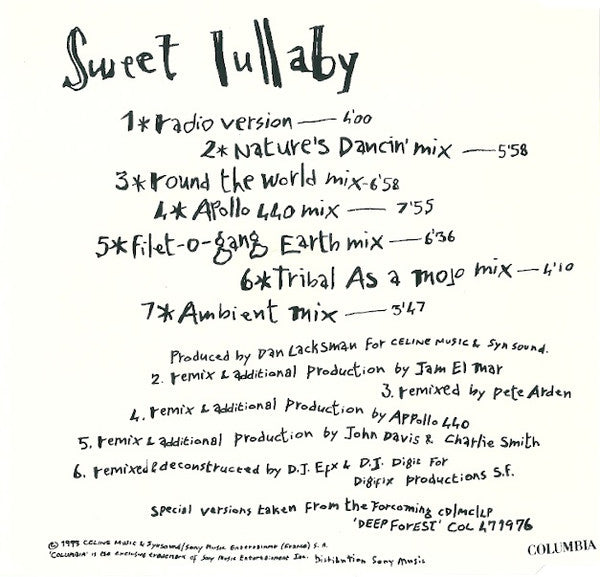 Sweet lullaby
1* radio version — 4'00
2* Nature's Dancin' mix — 5'58
3* round the world mix - 6'58
4* Apollo 440 mix — 7'55
5* filet-o-gang Earth mix — 6'36
6* Tribal As a mojo mix — 4'10
7* Ambient mix — 3'47
Produced by Dan Lacksman For CELINE MUSIC & Synsound.
2. remix & additional production by Jam El Mar
3. remixed by Pete Arden
4. remix & additional Production by APPollo 440
5. remix & additional production by John Davis & Charlie Smith
6. remixed & deconstructed by D.J. Efx & D.J. Digit For
Digifix productions S.F.
Special versions taken from the Forcoming CD/MC/LP
'DEEP FOREST' COL 471976
© 1993 CELINE Music & Synsound/Sony Music Entertainment (France) S.A.
'COLUMBIA' is the exclusive trademark of Sony Music Entertainment Inc. Distribution Sony Music
COLUMBIA